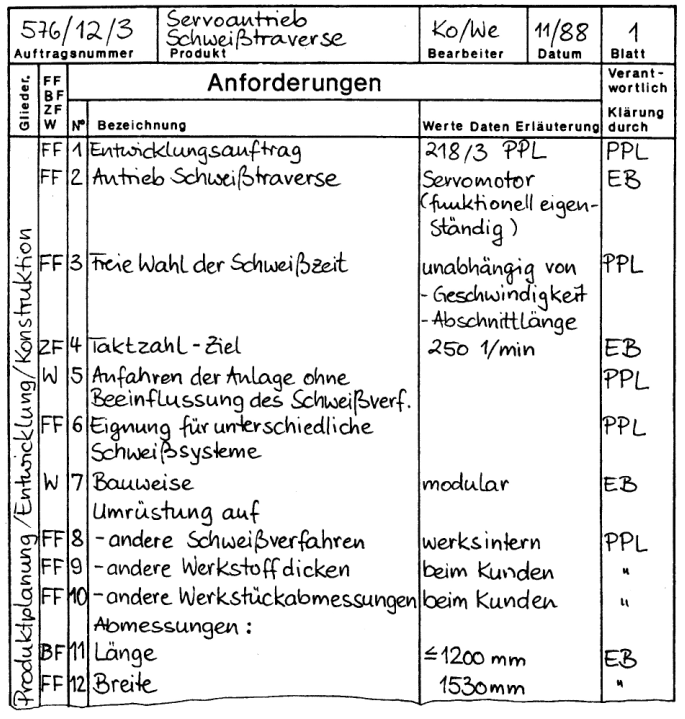 576/12/3 Servoantrieb Schweißtraverse Ko/We 11/88 1
Auftragsnummer Produkt Bearbeiter Datum Blatt
Glieder. FF BF ZF W Anforderungen Verant-wortlich
N° Bezeichnung Werte Daten Erläuterung Klärung durch
Produktplanung/Entwicklung/Konstruktion
FF 1 Entwicklungsauftrag 218/3 PPL PPL
FF 2 Antrieb Schweißtraverse Servomotor EB
(funktionell eigen-
ständig)
FF 3 Freie Wahl der Schweißzeit unabhängig von PPL
- Geschwindigkeit
- Abschnittlänge
ZF 4 Taktzahl - Ziel 250 1/min EB
W 5 Anfahren der Anlage ohne PPL
Beeinflussung des Schweißverf.
FF 6 Eignung für unterschiedliche PPL
Schweißsysteme
W 7 Bauweise modular EB
Umrüstung auf
FF 8 - andere Schweißverfahren werksintern PPL
FF 9 - andere Werkstoffdicken beim Kunden "
FF 10 - andere Werkstückabmessungen beim Kunden "
Abmessungen :
BF 11 Länge ≤ 1200 mm EB
FF 12 Breite 1530 mm "